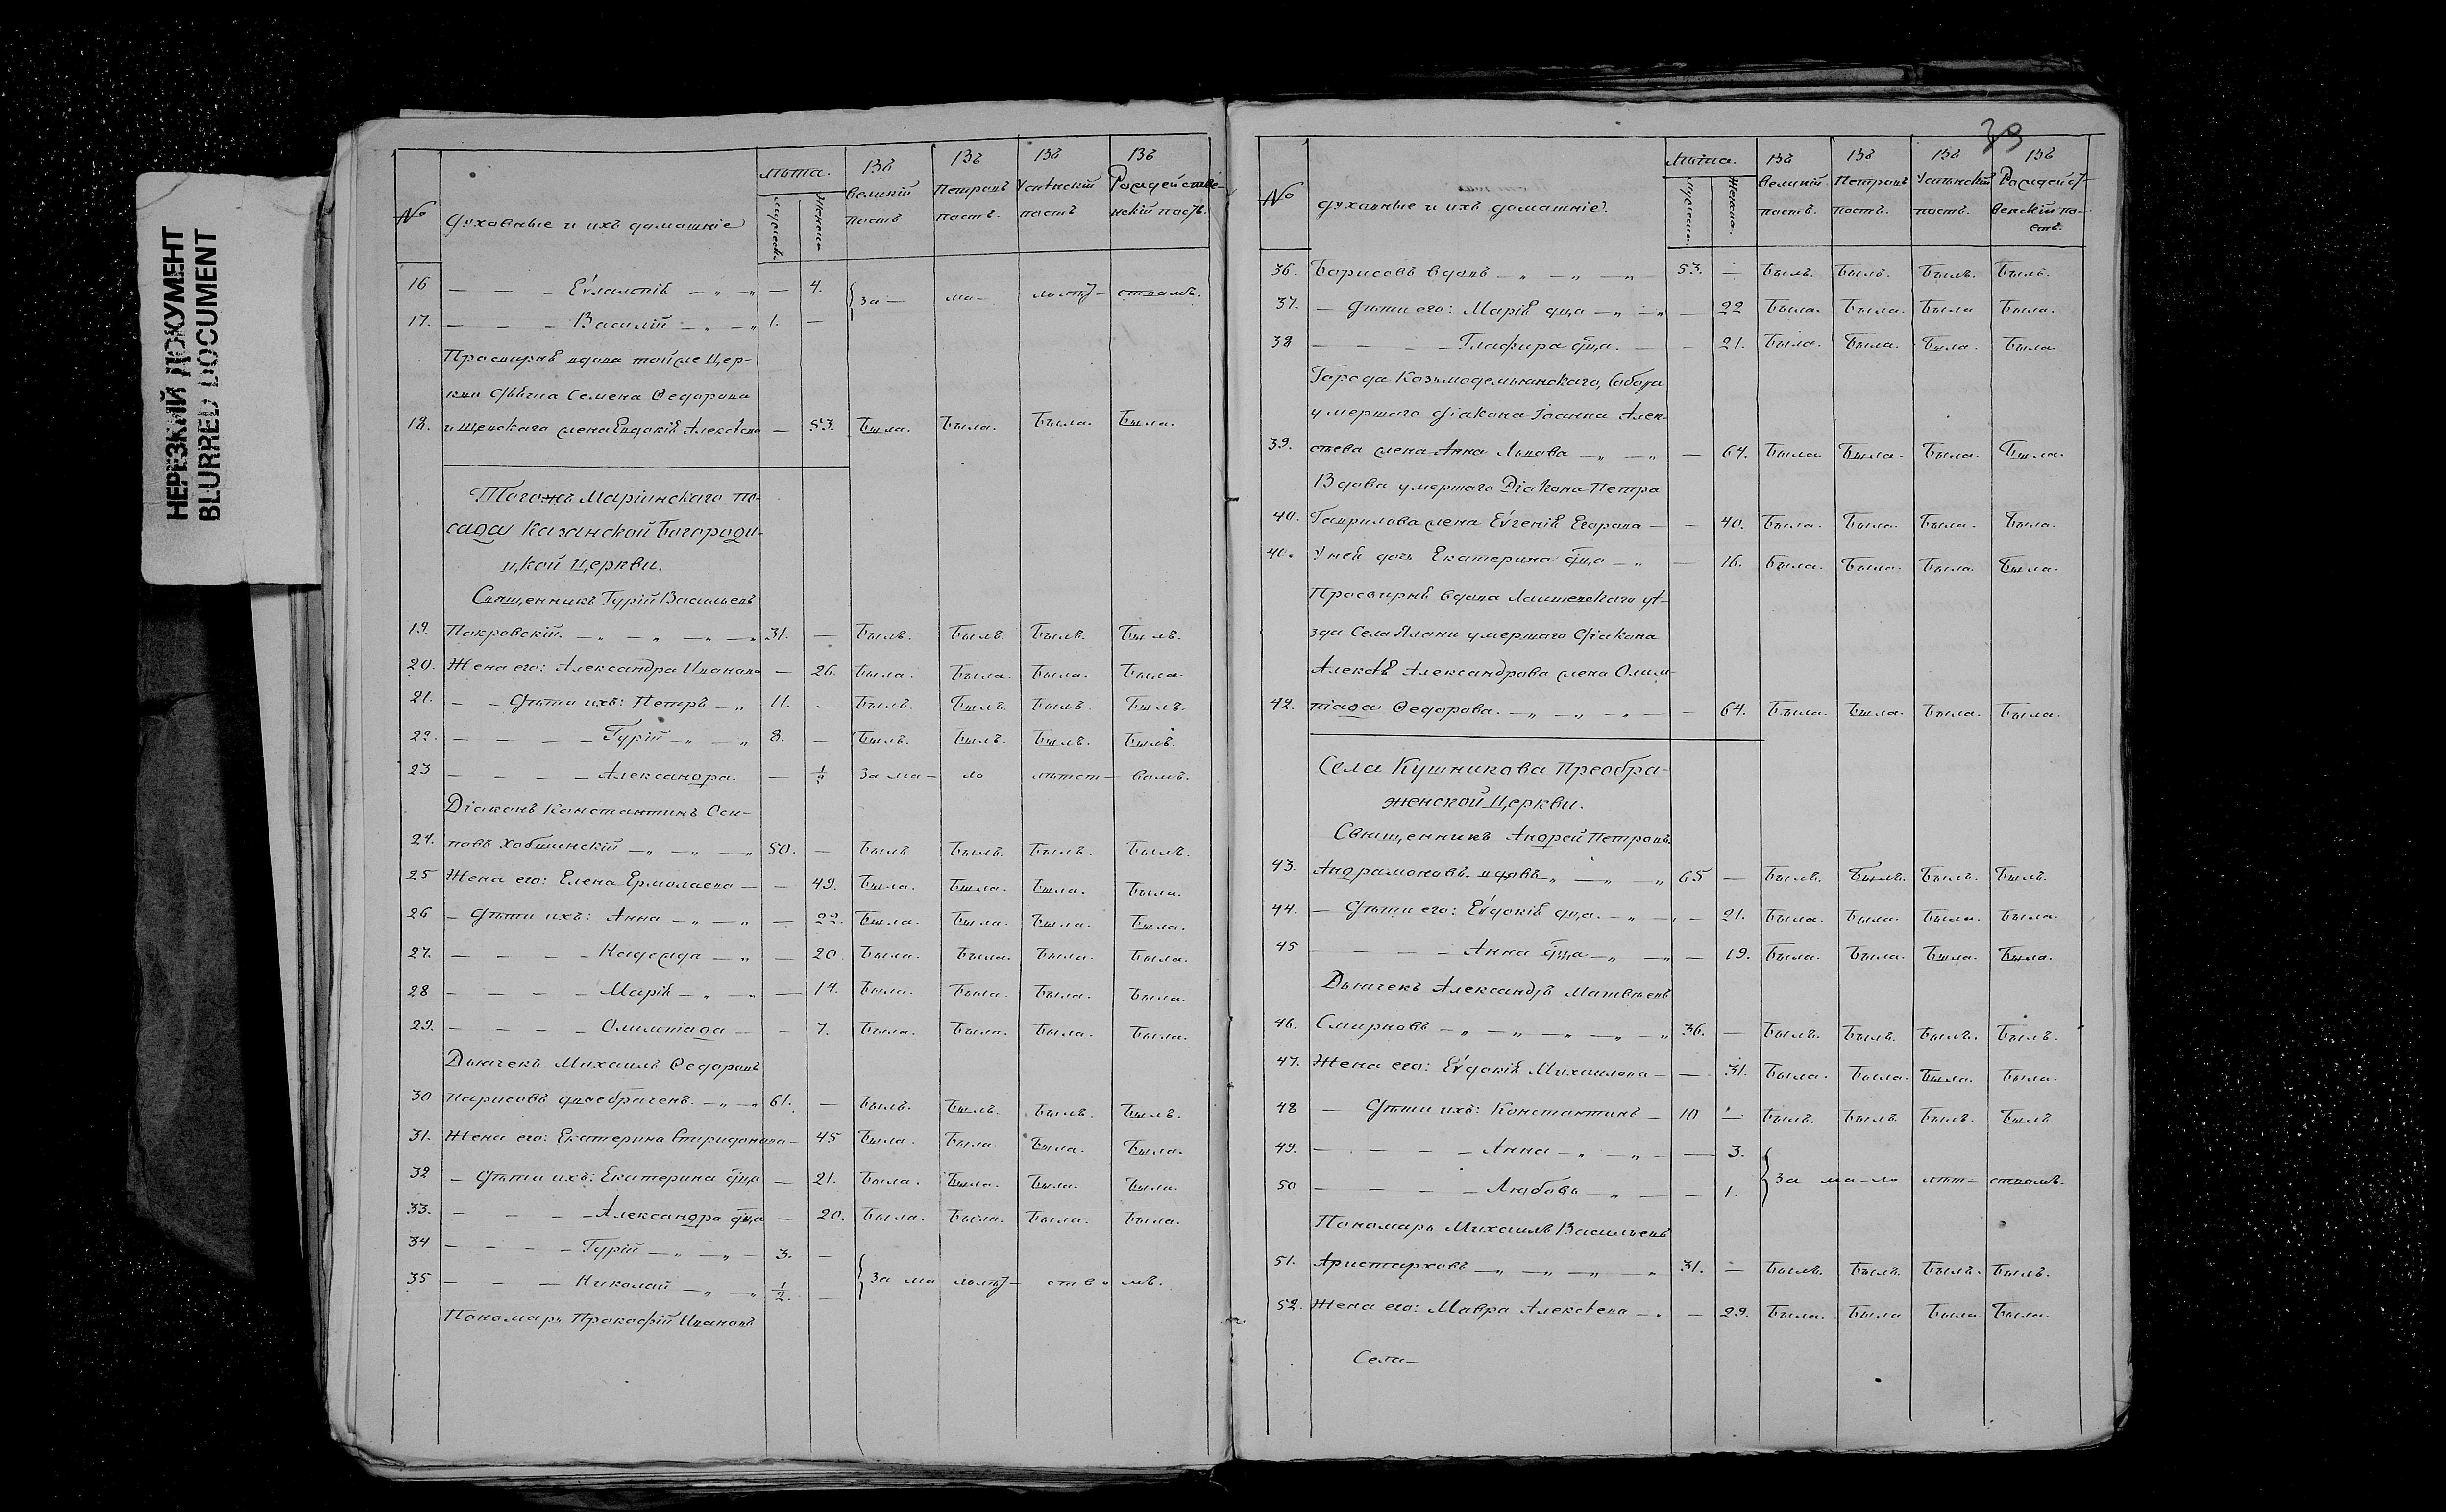 НЕРЕЗКИЙ ДОКУМЕНТ
BLURRED DOCUMENT
№ Духовные и ихъ домашнiе лѣта. мужеска женска Въ великiй постъ Въ Петровъ постъ. Въ Успѣнскiй постъ Въ Рождействе-нскiй постъ.
16 — — — Еѵлампiѣ — „ — „ — 4. За — ма — лолѣт — ствомъ.
17. — — — Василiй — „ — „ 1. —
Просвирнѣ вдова тойже Цер-
кви Дьячка Семена Ѳедорова
18. ищевскаго жена Евдокiѣ Алексѣева — 53. Была. Была. Была. Была.
Тогожъ Марiинскаго По-
сада Казанской Богороди-
цкой Церкви.
Священникъ Гурiй Васильевъ
19. Покровскiй. — „ — „ — „ — „ 31. — Былъ. Былъ. Былъ. Былъ.
20. Жена его: Александра Иванова — 26. Была. Была. Была. Была.
21. — — Дѣти ихъ: Петръ — „ 11. — Былъ. Былъ. Былъ. Былъ.
22. — — — — Гурiй — „ — „ 8. — Былъ. Былъ. Былъ. Былъ.
23 — — — — Александра. — 1/2 За ма — ло лѣтст — вомъ.
Дiаконъ Константинъ Оси-
24. повъ Хобшинскiй — „ — „ — „ 50. — Былъ. Былъ. Былъ. Былъ.
25 Жена его: Елена Ермолаева — — 49. Была. Была. Была. Была.
26 — Дѣти ихъ: Анна — „ — „ — 22. Была. Была. Была. Была.
27. — — — — Надежда — „ — 20. Была. Была. Была. Была.
28 — — — — Марiѣ — „ — „ — 14. Была. Была. Была. Была.
29. — — — — Олимпiада — — 7. Была. Была. Была. Была.
Дьячекъ Михаилъ Ѳедоровъ
30 Парисовъ двоебраченъ. — „ — „ 61. — Былъ. Былъ. Былъ. Былъ.
31. Жена его: Екатерина Спиридонова — 45 Была. Была. Была. Была.
32 — Дѣти ихъ: Екатерина дѣца — 21. Была. Была. Была. Была.
33. — — — — Александра дѣца — 20. Была. Была. Была. Была.
34 — — — — Гурiй — „ — „ — 3. —
35 — — — Николай — „ — „ 1/2. — За ма лолѣт — ство мъ.
Пономарь Прокофiй Ивановъ
39
№ Духовные и ихъ домашнiе. Лѣта. мужеска. Женска. Въ Великiй постъ. Въ Петровъ постъ. Въ Успѣнскiй постъ. Въ Рождейст-венскiй по-стъ.
36. Борисовъ вдовъ — „ — „ — „ 53. — Былъ. Былъ. Былъ. Былъ.
37. — Дѣти его: Марiѣ дѣца — „ — „ — 22 Была. Была. Была Была.
38 — — — — Глафира дѣца. — — 21. Была. Была. Была. Была
Города Козьмодемьянскаго, Собора
умершаго Дiакона Iоанна Алек-
39. сѣева жена Анна Львова — „ — „ — 64. Была Была. Была. Была.
Вдова умершаго Дiакона Петра
40. Гаврилова жена Еѵгенiѣ Егорова — — 40. Была. Была. Была. Была.
40. У ней дочь Екатерина дѣца — „ — 16. Была. Была. Была. Была.
Просвирнѣ вдова Лаишевскаго уѣ-
зда Села Ялани умершаго Дiакона
Алексѣѣ Александрова жена Олим-
42. пiада Ѳедорова. — „ — „ — „ — — 64. Была. Была. Была. Была.
Села Кушникова Преобра-
женской Церкви.
Священникъ Андрей Петровъ
43. Андрамоновъ вдовъ „ — „ — „ 65 — Былъ. Былъ. Былъ. Былъ.
44. — Дѣти его: Еѵдокiѣ дѣца. — „ — „ — 21. Была. Была. Была. Была.
45 — — — — Анна дѣца — „ — „ — 19. Была. Была. Была. Была.
Дьячекъ Александръ Матвѣевъ
46. Смирновъ — „ — „ — „ — „ — „ 36. — Былъ. Былъ. Былъ. Былъ.
47. Жена его: Еѵдокiѣ Михаилова — — 31. Была. Была. Была. Была.
48 — Дѣти ихъ: Константинъ — 10 — Былъ. Былъ. Былъ. Былъ.
49. — — — — Анна — „ — „ — — 3.
50 — — — — Любовь — „ — — 1. За ма — ло лѣт — ствомъ.
Пономарь Михаилъ Васильевъ
51. Аристарховъ — „ — „ — „ — „ 31. — Былъ. Былъ. Былъ. Былъ.
52. Жена его: Мавра Алексѣева — „ — 29. Была. Была Была. Была.
Села —